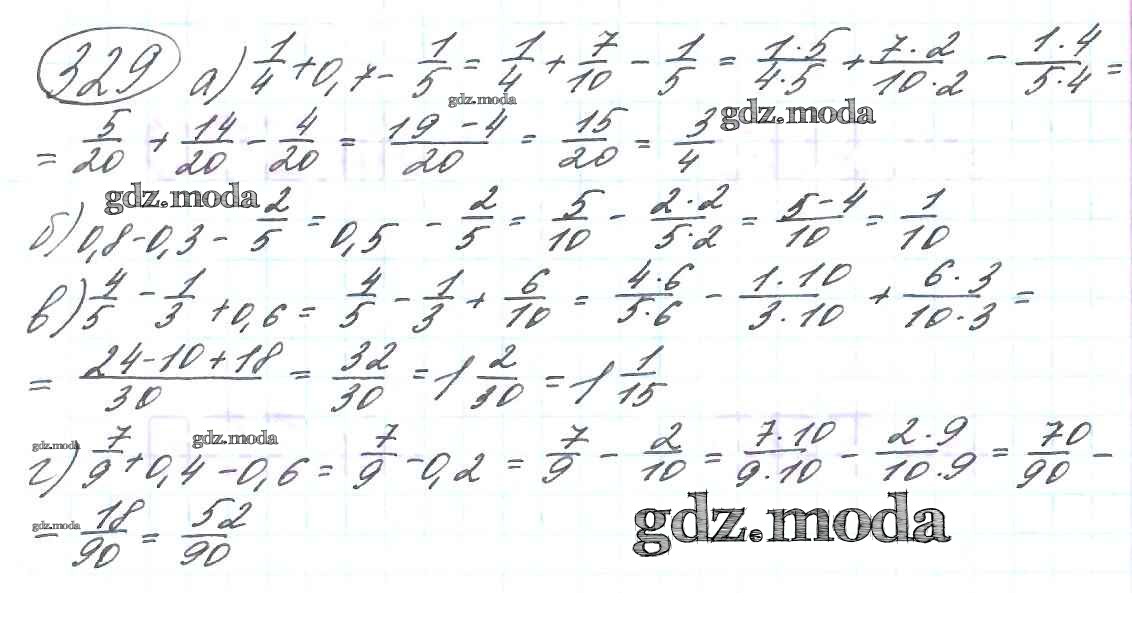 329 а) 1/4 + 0,7 - 1/5 = 1/4 + 7/10 - 1/5 = 1·5/4·5 + 7·2/10·2 - 1·4/5·4 =
gdz.moda
gdz.moda
= 5/20 + 14/20 - 4/20 = 19-4/20 = 15/20 = 3/4
gdz.moda
б) 0,8-0,3 - 2/5 = 0,5 - 2/5 = 5/10 - 2·2/5·2 = 5-4/10 = 1/10
в) 4/5 - 1/3 + 0,6 = 4/5 - 1/3 + 6/10 = 4·6/5·6 - 1·10/3·10 + 6·3/10·3 =
= 24-10+18/30 = 32/30 = 1 2/30 = 1 1/15
gdz.moda
gdz.moda
г) 7/9 + 0,4 - 0,6 = 7/9 - 0,2 = 7/9 - 2/10 = 7·10/9·10 - 2·9/10·9 = 70/90 -
gdz.moda
- 18/90 = 52/90
gdz.moda